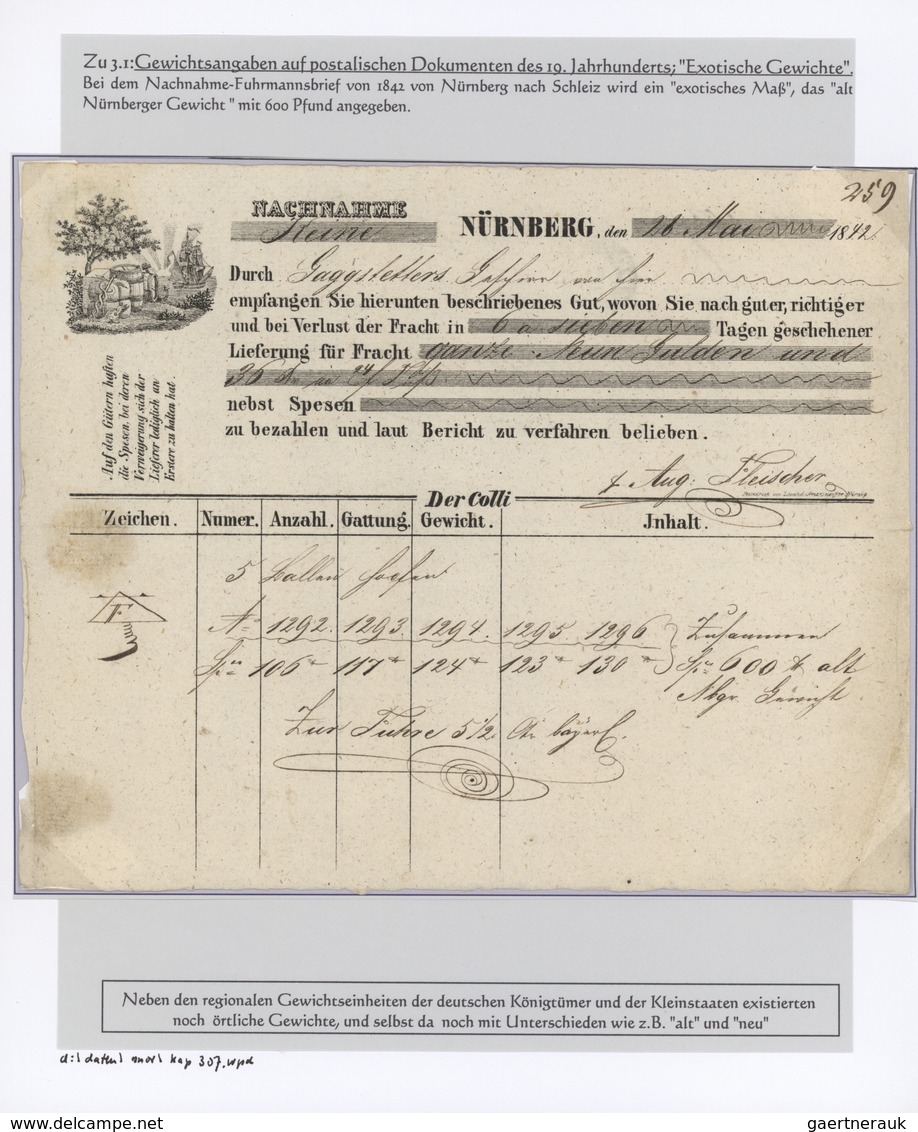 Zu 3.1: Gewichtsangaben auf postalischen Dokumenten des 19. Jahrhunderts; "Exotische Gewichte".
Bei dem Nachnahme-Fuhrmannsbrief von 1842 von Nürnberg nach Schleiz wird ein "exotisches Maß", das "alt
Nürnberger Gewicht " mit 600 Pfund angegeben.
259
NACHNAHME
Keine
NÜRNBERG, den 28 Mai 1842
Durch
empfangen Sie hierunten beschriebenes Gut, wovon Sie nach guter, richtiger
und bei Verlust der Fracht in 6 a sieben Tagen geschehener
Lieferung für Fracht ganze Neun Gulden und
36
nebst Spesen
zu bezahlen und laut Bericht zu verfahren belieben.
Auf den Gütern haften
die Spesen, bei deren
Verweigerung sich der
Lieferer lediglich an
Erstere zu halten hat.
Aug: Fleischer
Der Colli
Zeichen. Numer. Anzahl. Gattung. Gewicht. Jnhalt.
5 Ballen Hopfen
F
No 1292. 1293. 1294. 1295 1296 Zusammen
106 117 124 123 130 600 alt
Nbgr. Gewicht
Zur Fuhre 5 1/2 Ctr bayerl.
Neben den regionalen Gewichtseinheiten der deutschen Königtümer und der Kleinstaaten existierten
noch örtliche Gewichte, und selbst da noch mit Unterschieden wie z.B. "alt" und "neu"
d:\daten\mor\kap 307.wpd
gaertnerauk